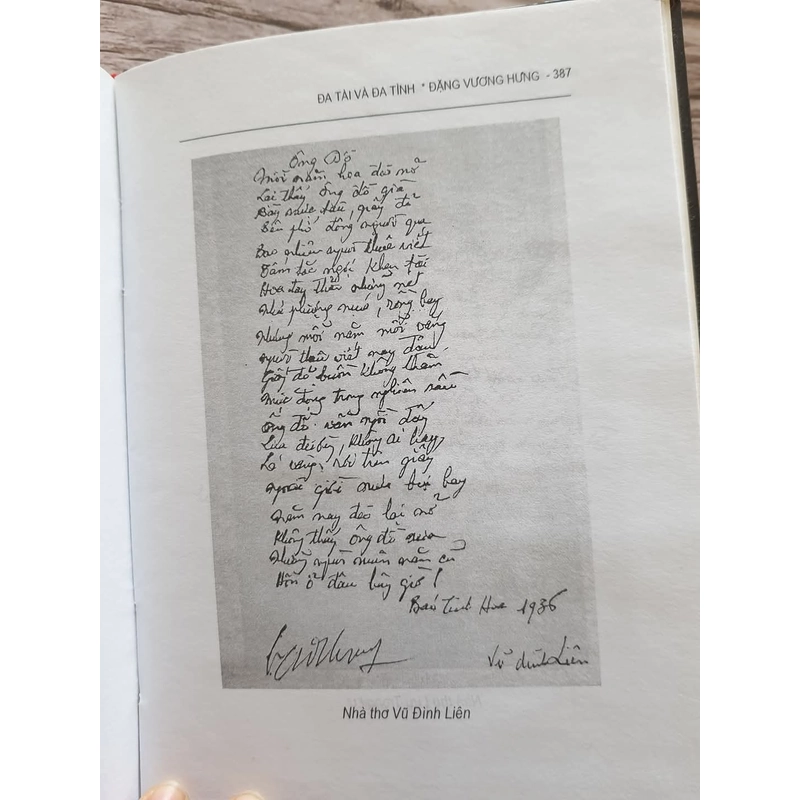 ĐA TÀI VÀ ĐA TÌNH * ĐẶNG VƯƠNG HƯNG - 387
Ông Đồ
Mỗi năm hoa đào nở
Lại thấy ông đồ già
Bày mực tàu, giấy đỏ
Bên phố đông người qua
Bao nhiêu người thuê viết
Tấm tắc ngợi khen tài
Hoa tay thảo những nét
Như phượng múa, rồng bay
Nhưng mỗi năm mỗi vắng
Người thuê viết nay đâu
Giấy đỏ buồn không thắm
Mực đọng trong nghiên sầu
Ông đồ vẫn ngồi đấy
Qua đường, không ai hay
Lá vàng rơi trên giấy
Ngoài giời mưa bụi bay
Năm nay đào lại nở
Không thấy ông đồ xưa
Những người muôn năm cũ
Hồn ở đâu bây giờ!
Báo Tinh Hoa 1936
Vũ Đình Liên
Nhà thơ Vũ Đình Liên